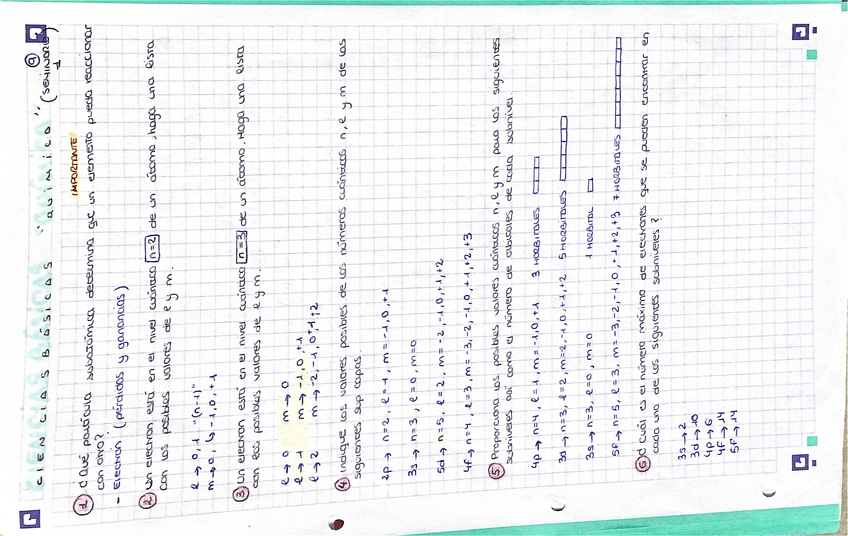 CIENCIAS BÁSICAS "QUÍMICA"
(SEMINARIO)
9
IMPORTANTE
1 ¿Qué partícula subatómica determina que un elemento pueda reaccionar
con otro?
- Electrón (pérdidas y ganancias)
2 Un electrón está en el nivel cuántico n=2 de un átomo, haga una lista
con los posibles valores de l y m.
l → 0, 1 "(n-1)"
m → 0, -1, 0, +1
3 Un electrón está en el nivel cuántico n=3 de un átomo. Haga una lista
con los posibles valores de l y m.
l → 0 m → 0
l → 1 m → -1, 0, +1
l → 2 m → -2, -1, 0, +1, +2
4 Indique los valores posibles de los números cuánticos n, l y m de las
siguientes sup capas.
2p → n=2, l=1, m=-1, 0, +1
3s → n=3, l=0, m=0
5d → n=5, l=2, m=-2, -1, 0, +1, +2
4f → n=4, l=3, m=-3, -2, -1, 0, +1, +2, +3
5 Proporciona los posibles valores cuánticos n, l y m para los siguientes
subniveles así como el número de orbitales de cada subnivel.
4p → n=4, l=1, m=-1, 0, +1 3 HORBITALES
3d → n=3, l=2, m=2, -1, 0, +1, +2 5 HORBITALES
3s → n=3, l=0, m=0 1 HORBITAL
5f → n=5, l=3, m=-3, -2, -1, 0, +1, +2, +3 7 HORBITALES
6 ¿Cuál es el número máximo de electrones que se pueden encontrar en
cada uno de los siguientes subniveles?
3s → 2
3d → 10
4p → 6
4f → 14
5f → 14